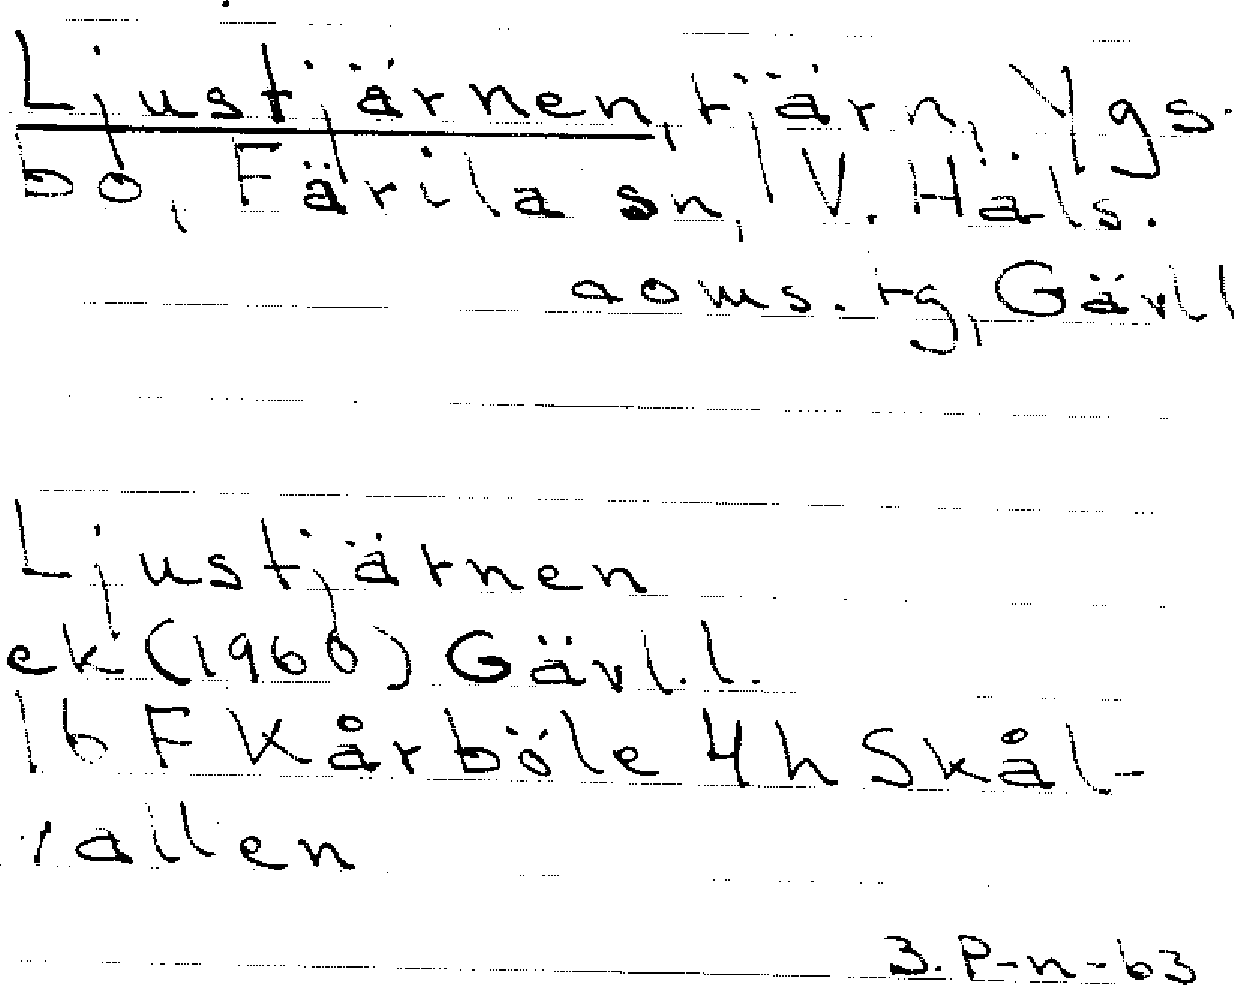 Ljustjärnen, tjärn, Ygs-
bo, Färila sn, V. Häls.
doms. tg, Gävl l
Ljustjärnen
ek (1960) Gävl. l.
16 F Kårböle 4 h Skål-
vallen
3. P-n-63